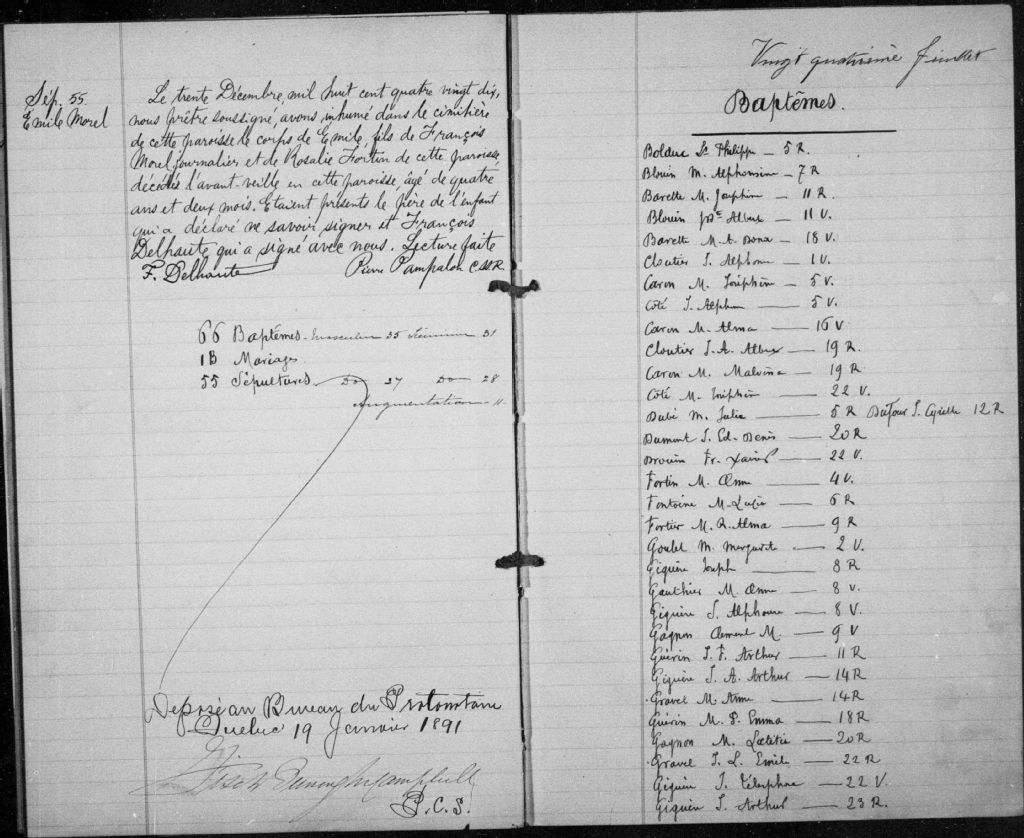 Sép. 55.
Emile Morel
Le trente Décembre, mil huit cent quatre vingt dix,
nous prêtre soussigné, avons inhumé dans le cimitière
de cette paroisse le corps de Emile, fils de François
Morel journalier et de Rosalie Fortin de cette paroisse
décédé l'avant-veille en cette paroisse, âgé de quatre
ans et deux mois. Etaient présents le père de l'enfant
qui a déclaré ne savoir signer et François
Delhaute qui a signé avec nous. Lecture faite
F. Delhaute Pierre Pampalon C.SS.R.
66 Baptêmes - masculin 35 féminin 31
18 Mariages
55 Sépultures - Do 27 Do - 28
Augmentation - 11
Déposé au Bureau du Protonotaire
Québec 19 Janvier 1891
Fiset Burroughs Campbell
P.C.S.
Vingt quatrième feuillet
Baptêmes.
Bolduc Ls Philippe - 5 R.
Blouin M. Alphonsine - 7 R
Barette M. Joséphine - 11 R.
Blouin Jos. Albert - 11 V.
Barette M. A. Bona - 18 V.
Cloutier J. Alphonse - 1 V.
Caron M. Joséphine - 5 V.
Coté J. Alph - 5 V.
Caron M. Alma - 16 V
Cloutier J. A. Albert - 19 R.
Caron M. Malvina - 19 R
Coté M. Joséphine - 22 V.
Dubé M. Julie - 5 R Dufour J. Cyrille 12 R
Dumont J. Ed. Denis - 20 R
Drouin Fr. Xavier - 22 V.
Fortin M. Anne - 4 V.
Fontaine M. Luçie - 6 R
Fortier M. R. Alma - 9 R
Goulet M. Marguerite - 2 V.
Giguère Joseph - 8 R
Gauthier M. Anne - 8 V.
Giguère J. Alphonse - 8 V.
Gagnon Clement M. - 9 V
Guérin J. F. Arthur - 11 R
Giguère J. A. Arthur - 14 R
Gravel M. Anne - 14 R
Guérin M. S. Emma - 18 R
Gagnon M. Lætitia - 20 R
Gravel J. L. Emile - 22 R
Giguère J. Télesphore - 22 V.
Giguère J. Arthur - 23 R.